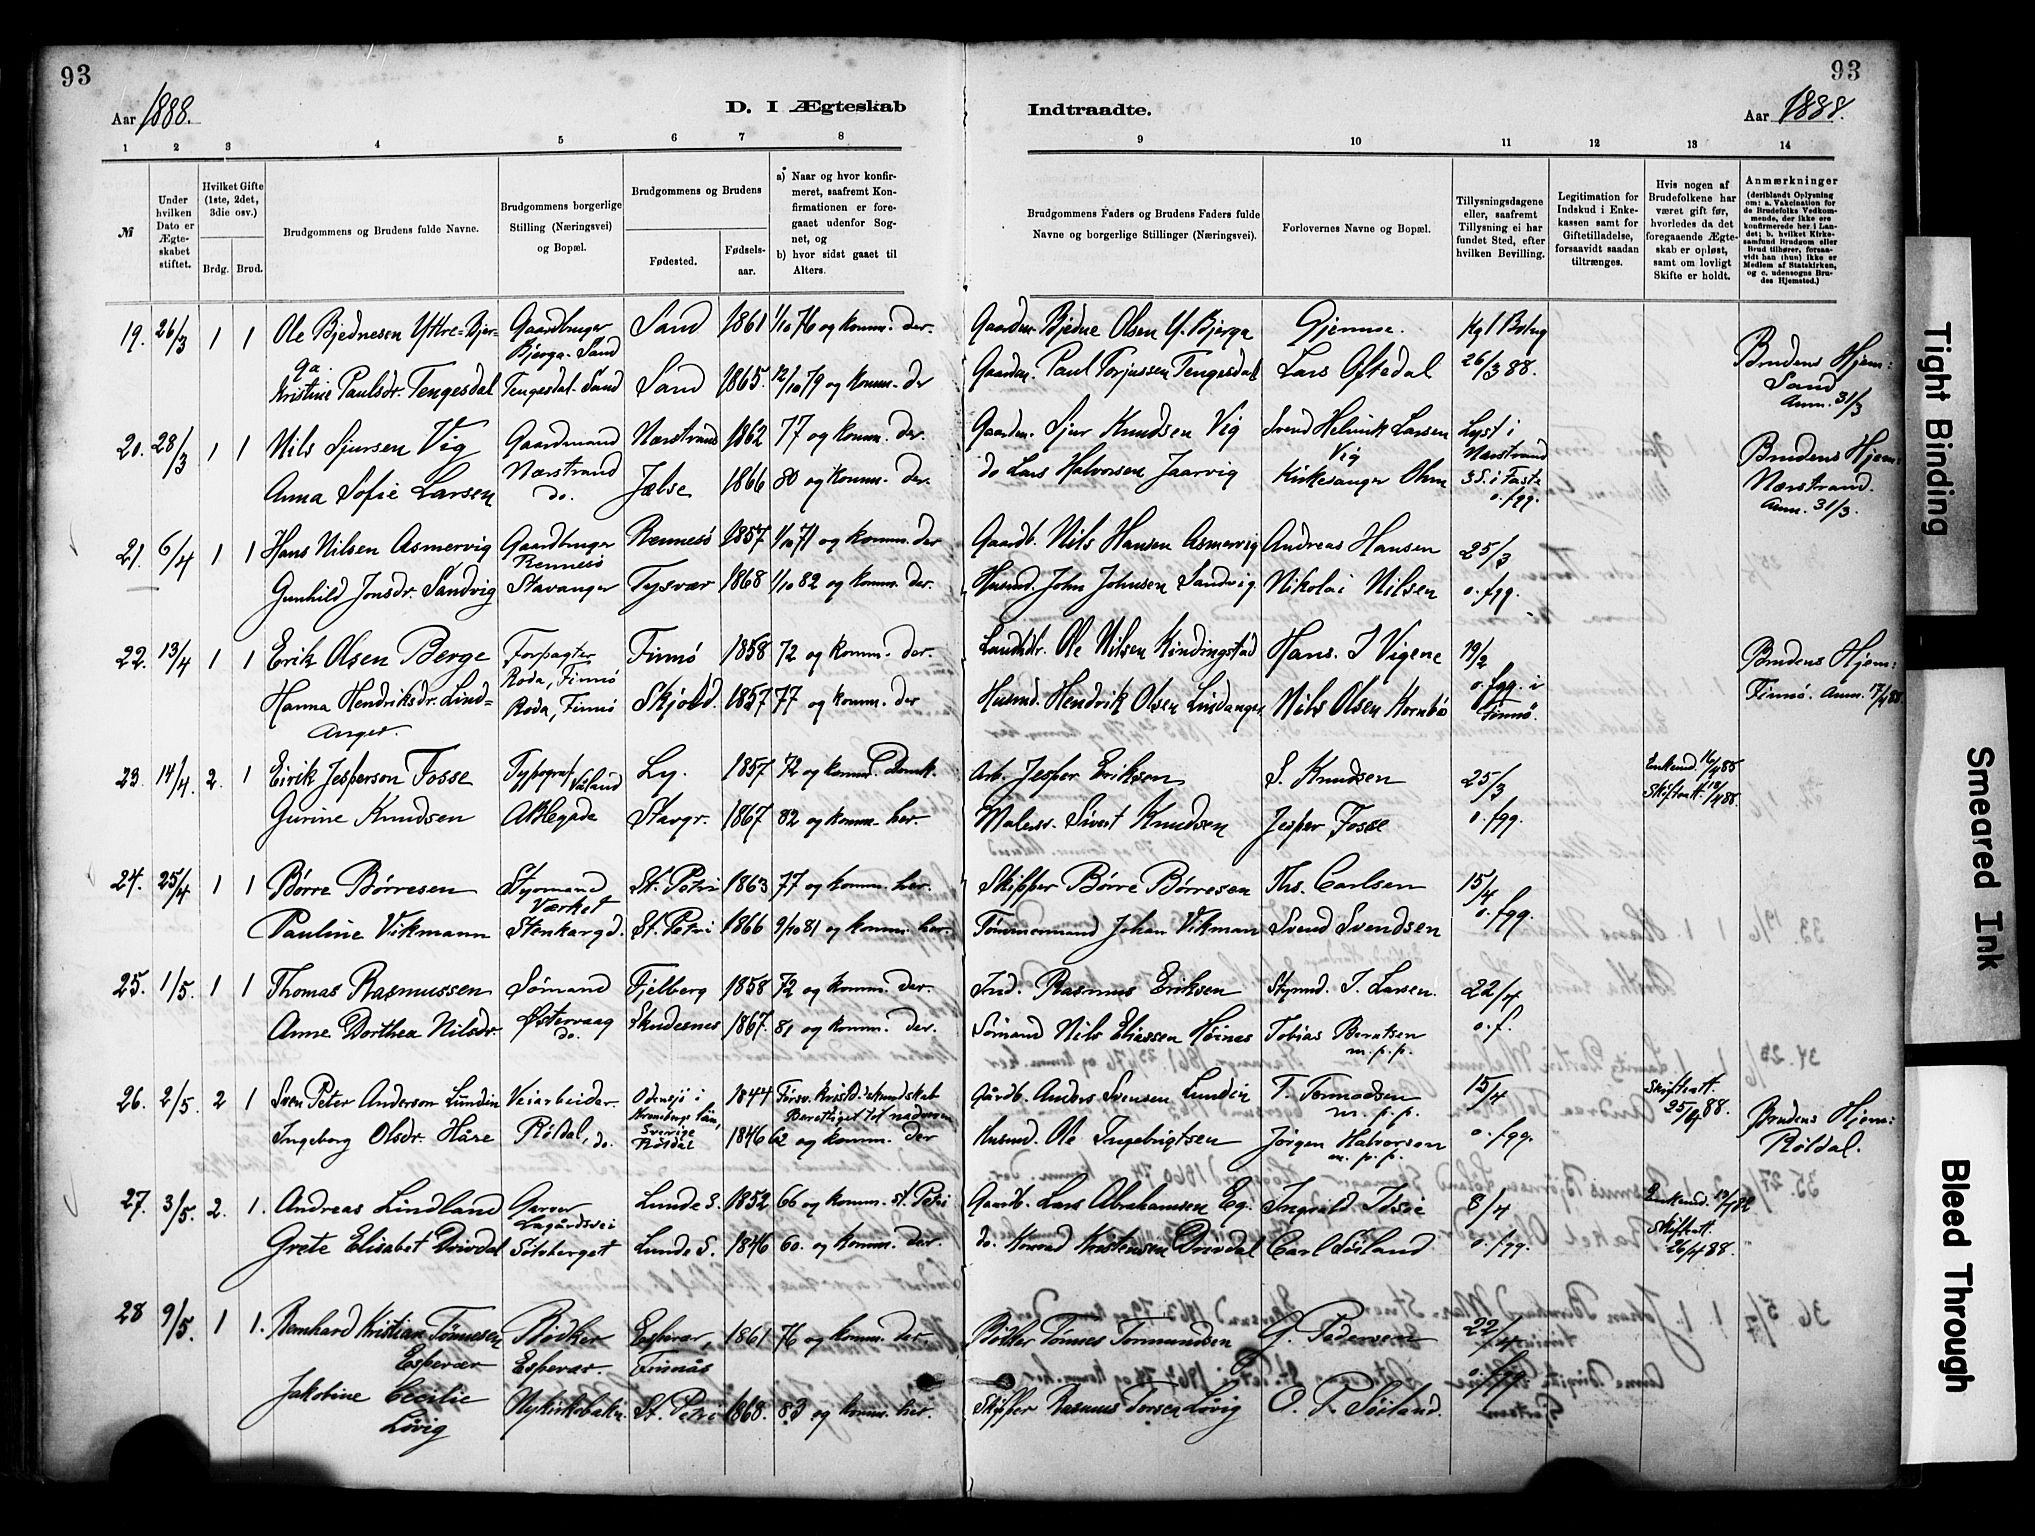 93
93
Aar 1888.
D. I Ægteskab
Indtraadte.
Aar 1888.
1 2 3 4 5 6 7 8 9 10 11 12 13 14
№
Under hvilken Dato er Ægteskabet stiftet.
Hvilket Gifte (1ste, 2det, 3die osv.)
Brdg. Brud.
Brudgommens og Brudens fulde Navne.
Brudgommens borgerlige Stilling (Næringsvei) og Bopæl.
Brudgommens og Brudens
Fødested.
Fødsels-aar.
a) Naar og hvor konfirmeret, saafremt Konfirmationen er foregaaet udenfor Sognet, og
b) hvor sidst gaaet til Alters.
Brudgommens Faders og Brudens Faders fulde Navne og borgerlige Stillinger (Næringsvei).
Forlovernes Navne og Bopæl.
Tillysningsdagene eller, saafremt Tillysning ei har fundet Sted, efter hvilken Bevilling.
Legitimation for Indskud i Enkekassen samt for Giftetilladelse, forsaavidt saadan tiltrænges.
Hvis nogen af Brudefolkene har været gift før, hvorledes da det foregaaende Ægteskab er opløst, samt om lovligt Skifte er holdt.
Anmærkninger (deriblandt Oplysning om: a. Vakcination for de Brudefolks Vedkommende, der ikke ere konfirmerede her i Landet; b. hvilket Kirkesamfund Brudgom eller Brud tilhører, forsaavidt han (hun) ikke er Medlem af Statskirken, og c. udensogns Brudes Hjemsted.)
19. 26/3 1 1 Ole Bjednesen Yttre-Bjer- Gaardbruger Sand 1861 1/10 76 og komm. der. Gaardm. Bjedne Olsen Y. Bjerga Gjermoe. Kgl Bevlg
ga. Bjerga. Sand 26/3 88. Brudens Hjem:
Kristine Paulsdr. Tengesdal Tengesdal. Sand Sand 1865. 12/10 79 og komm. der Gaardm. Paul Torjussen Tengesdal Lars Oftedal Sand
Anm. 31/3
20. 28/3 1 1 Nils Sjursen Vig Gaardmand Nærstrand 1862 77 og komm. der. Gaardm. Sjur Knudsen Vig Svend Helmik Larsen Lyst i
Nærstrand Vig Nærstrand Brudens Hjem:
Anna Sofie Larsen do. Jælse 1866 80 og komm. der. do Lars Halvorsen Jaarvig Kirkesanger Ohm 3 S. i Faste Nærstrand.
o. fgg. Anm. 31/3.
21. 6/4 1 1 Hans Nilsen Asmervig Gaardbruger Rennesö 1857 1/10 71 og komm. der Gaardb. Nils Hansen Asmervig Andreas Hansen 25/3
Rennesö
Gunhild Jonsdr. Sandvig Stavanger Tysvær 1868 1/10 82 og komm. der. Husmd. John Johnsen Sandvig. Nikolai Nilsen o. fgg.
22. 13/4 1 1 Erik Olsen Berge Forpagter Finnö 1858 72 og komm. der. Ole Nilsen Kindingstad Hans. J Vigene 19/2 Brudens Hjem:
Roda, Finnö o. fgg. i
Hanna Hendriksdr. Lind= Roda, Finnö Skjold. 1857 77 og komm. der Husmd. Hendrik Olsen Lindanger Nils Olsen Hornbö Finnö. Finnö. Anm. 17/4 88
Anger.
23. 14/4. 2. 1 Eirik Jesperson Fosse Typograf Våland Ly. 1857 72 og komm. Domk. Arb. Jesper Erikson S. Knudsen 25/3 Enkemd. 16/4 85
Skifteatt. 12/4 88.
Gurine Knudsen Aklegade Stavgr. 1867 82 og komm. her. Malersv. Sivert Knudsen Jesper Fosse o. fgg.
24. 25/4 1 1 Børre Børresen Styrmand St. Petri 1863 77 og komm. her. Skipper Børre Børresen Ths. Carlsen 15/4
Værket o. fgg.
Pauline Vikmann Stenkargd. St. Petri 1866 9/10 81 og komm. her. Tömmermand Johan Vikman Svend Svendsen
25. 1/5. 1 1 Thomas Rasmussen Sømand Fjelberg 1858 72 og komm. der. Ind. Rasmus Eriksen Styrmd. J. Larsen. 22/4
Østervaag
Anne Dorthea Nilsdr. do. Skudesnes 1867. 81 og komm. der. Sømand Nils Eliassen Höines Tobias Berntsen o. f.
m. p. p.
26. 2/5. 2 1 Sven Peter Anderson Lundin Veiarbeider. Odensjö i 1844 Forsv. Kristd.skundskab Gårdb. Anders Svensen Lundin T. Tormodsen 15/4 Skifteatt.
Kronobergs län, Berettiget til nadveren m. p. p. 25/4 88. Brudens Hjem:
Sverige
Ingeborg Olsdr. Håre Röldal, do. Röldal 1846 62 og komm. der Husmd. Ole Ingebrigtsen Jörgen Halvorson o. fgg. Röldal.
m. p. p.
27. 3/5. 2. 1. Andreas Lindland Garver Lunde S. 1852 66 og komm. St. Petri Gaardb. Lars Abrahamsen Eg. Ingvald Idsöe 8/4
Lagårdsvei Skifteatt.
Grete Elisabet Drivdal Solaberget Lunde S. 1846 60. og komm. der. do. Konrad Kristensen Drivdal Carl Söiland o. fgg. 26/4 88.
28 9/5. 1 1. Bernhard Kristian Tönnesen Bödker Espevær, 1861 76 og komm. der. Bödker Tönnes Tormundsen G. Pedersen 22/4
Espevær Espevær. Finnås
Jakobine Cecilie Nykirkebakn. St. Petri 1868. 83 og komm. her. Skipper Rasmus Torsen Lövig O. T. Söiland. o. fgg.
Lövig
Tight Binding
Smeared Ink
Bleed Through